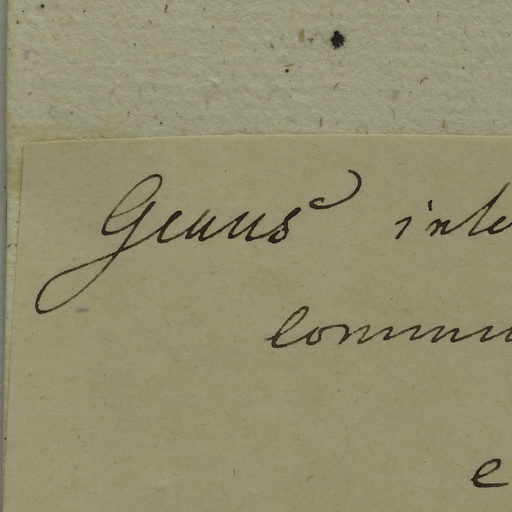 Genus inte
commu
e